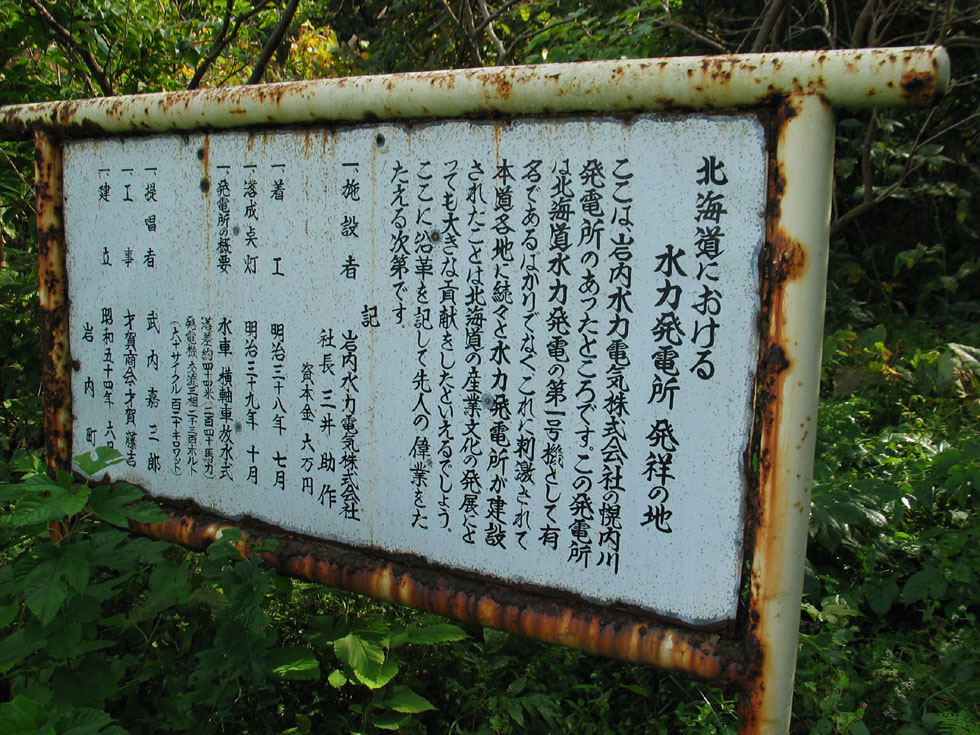 北海道における
水力発電所 発祥の地
ここは岩内水力電気株式会社の幌内川
発電所のあったところです。この発電所
は北海道水力発電の第一号機として有
名であるばかりでなくこれに刺激されて
本道各地に続々と水力発電所が建設
されたことは北海道の産業文化の発展にと
っても大きな貢献をしたといえるでしょう。
ここに沿革を記して先人の偉業をた
たえる次第です。
記
一施設者 岩内水力電気株式会社
社長 三井助作
資本金 六万円
一着工 明治三十八年 七月
一落成点灯 明治三十九年 十月
一発電所の概要 水車 横軸車放水式
落差約四十四米(二百四十馬力)
発電機 交流三相二千三百ボルト
(六十サイクル 百二十キロワット)
一提唱者 武内嘉三郎
一工事 才賀商会 才賀藤吉
一建立 昭和五十四年 六月
岩内町